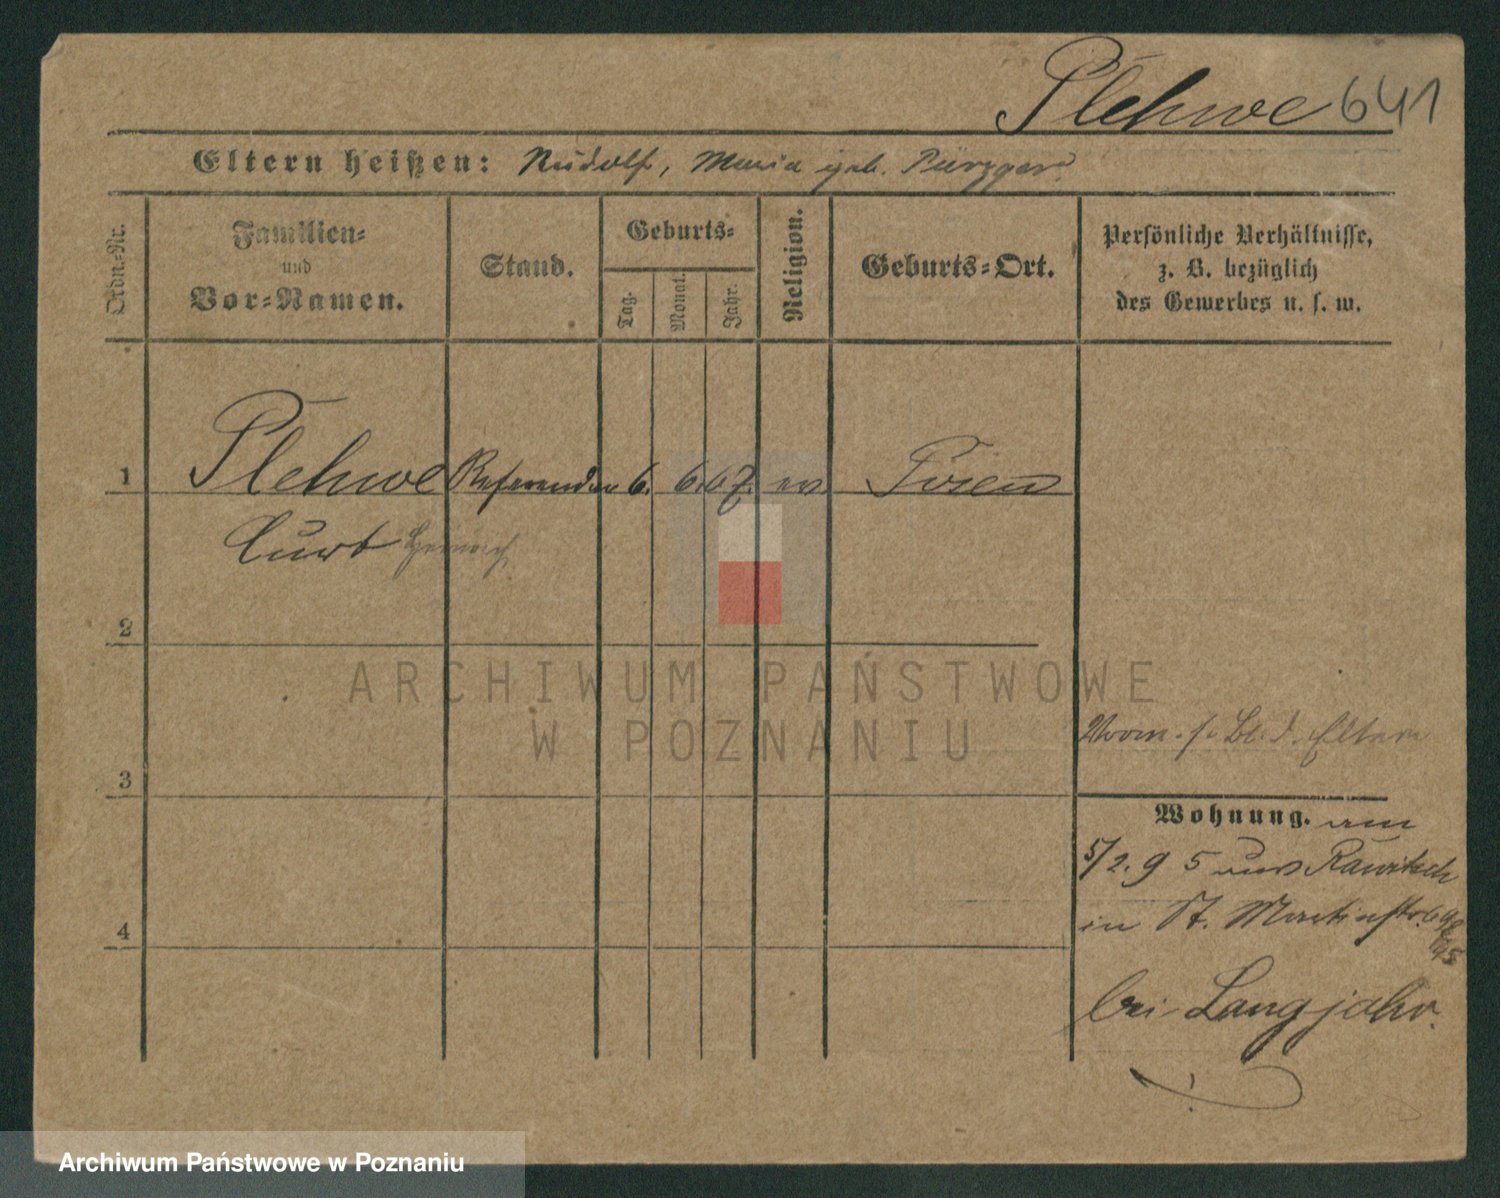 Plehwe 641
Eltern heißen: Rudolf, Maria geb.
Ordn.-Nr.
Familien-
und
Vor-Namen.
Stand.
Geburts-
Tag.
Monat.
Jahr.
Religion.
Geburts-Ort.
Persönliche Verhältnisse,
z. B. bezüglich
des Gewerbes u. s. w.
1 Plehwe Referendar 6. 6. 67. ev Posen
Curt Heinrich
2
3
4
Vorm. s. Bl. d. Eltern
Wohnung. am
5/2. 95 aus Rawitsch
in St. Martinstr.
bei Langjahr.
ARCHIWUM PAŃSTWOWE
W POZNANIU
Archiwum Państwowe w Poznaniu